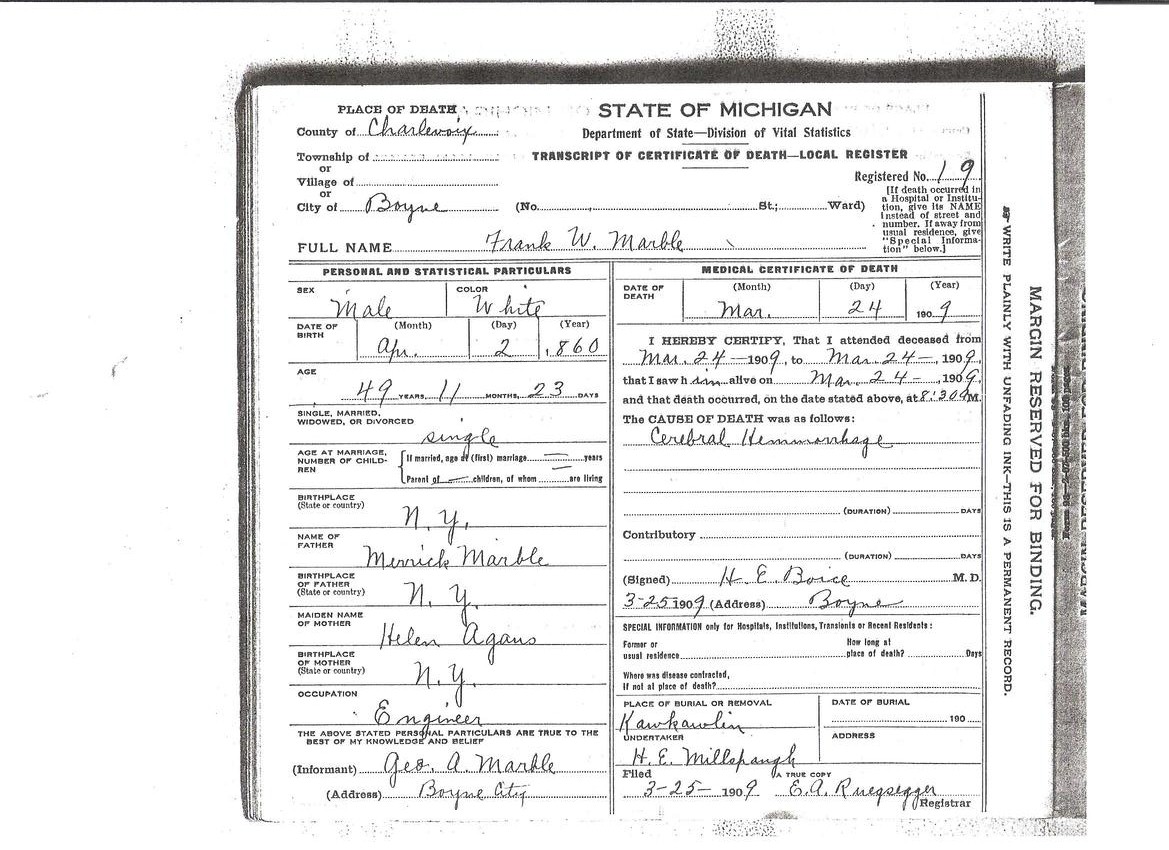 PLACE OF DEATH
STATE OF MICHIGAN
County of Charlevoix
Department of State—Division of Vital Statistics
Township of
TRANSCRIPT OF CERTIFICATE OF DEATH—LOCAL REGISTER
or
Village of
Registered No. 19
or
City of Boyne (No. St.; Ward)
[If death occurred in
a Hospital or Institu-
tion, give its NAME
instead of street and
number. If away from
usual residence, give
"Special Informa-
tion" below.]
FULL NAME Frank W. Marble
PERSONAL AND STATISTICAL PARTICULARS
SEX Male
COLOR White
DATE OF BIRTH
(Month) (Day) (Year)
Apr. 2 1860
AGE
49 YEARS, 11 MONTHS, 23 DAYS
SINGLE, MARRIED,
WIDOWED, OR DIVORCED
single
AGE AT MARRIAGE,
NUMBER OF CHILD-
REN
If married, age at (first) marriage — years
Parent of — children, of whom — are living
BIRTHPLACE
(State or country)
N. Y.
NAME OF
FATHER
Merrick Marble
BIRTHPLACE
OF FATHER
(State or country)
N. Y.
MAIDEN NAME
OF MOTHER
Helen Agans
BIRTHPLACE
OF MOTHER
(State or country)
N. Y.
OCCUPATION
Engineer
THE ABOVE STATED PERSONAL PARTICULARS ARE TRUE TO THE
BEST OF MY KNOWLEDGE AND BELIEF
(Informant) Geo. A. Marble
(Address) Boyne City
MEDICAL CERTIFICATE OF DEATH
DATE OF
DEATH
(Month) (Day) (Year)
Mar. 24 1909
I HEREBY CERTIFY, That I attended deceased from
Mar. 24 — 1909, to Mar. 24 —, 1909,
that I saw him alive on Mar. 24 —, 1909,
and that death occurred, on the date stated above, at 8:30 M.
The CAUSE OF DEATH was as follows:
Cerebral Hemmorrhage
(DURATION) DAYS
Contributory
(DURATION) DAYS
(Signed) H. E. Boice M. D.
3-25 1909 (Address) Boyne
SPECIAL INFORMATION only for Hospitals, Institutions, Transients or Recent Residents:
Former or
usual residence
How long at
place of death? Days
Where was disease contracted,
If not at place of death?
PLACE OF BURIAL OR REMOVAL
Kawkawlin
DATE OF BURIAL
190
UNDERTAKER
H. E. Millspaugh
ADDRESS
Filed
3-25- 1909
A TRUE COPY
E. A. Ruegsegger
Registrar
WRITE PLAINLY WITH UNFADING INK—THIS IS A PERMANENT RECORD.
MARGIN RESERVED FOR BINDING.